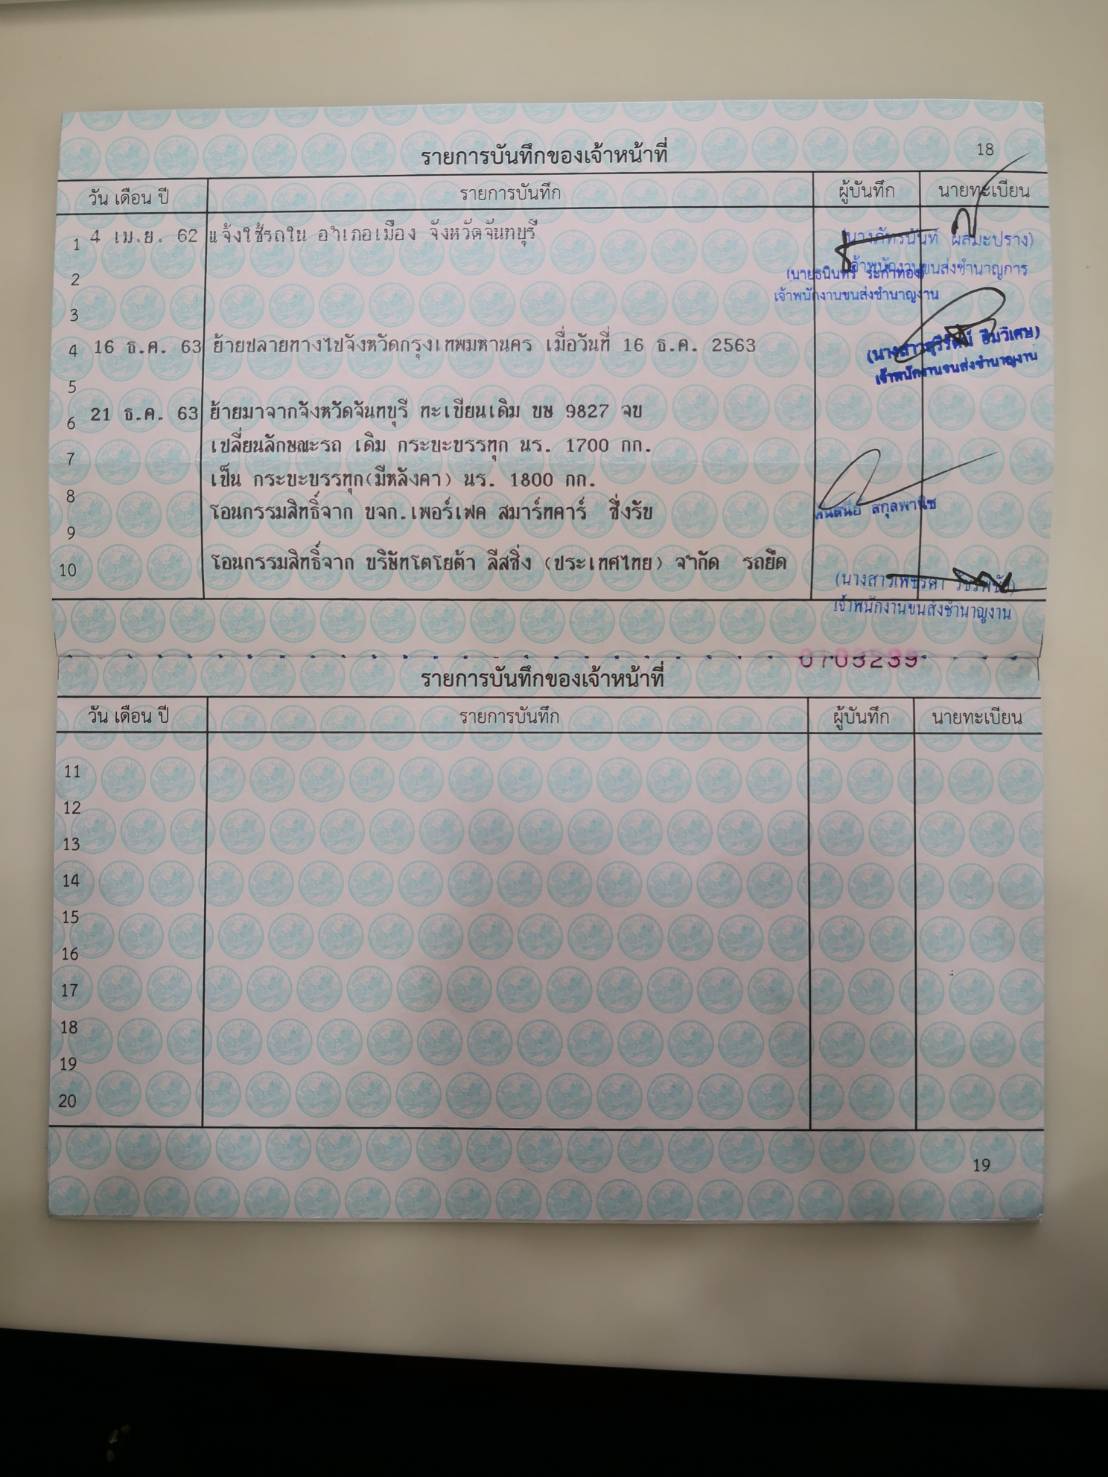 18
รายการบันทึกของเจ้าหน้าที่
วัน เดือน ปี รายการบันทึก ผู้บันทึก นายทะเบียน
1 4 เม.ย. 62 แจ้งใช้รถใน อำเภอเมือง จังหวัดจันทบุรี
ผสมะปราง)
เจ้าพนักงานขนส่งชำนาญการ
2
เจ้าพนักงานขนส่งชำนาญงาน
3
4 16 ธ.ค. 63 ย้ายปลายทางไปจังหวัดกรุงเทพมหานคร เมื่อวันที่ 16 ธ.ค. 2563
เจ้าพนักงานขนส่งชำนาญงาน
5
6 21 ธ.ค. 63 ย้ายมาจากจังหวัดจันทบุรี ทะเบียนเดิม บษ 9827 จบ
7 เปลี่ยนลักษณะรถ เดิม กระบะบรรทุก นร. 1700 กก.
8 เป็น กระบะบรรทุก(มีหลังคา) นร. 1800 กก.
9 โอนกรรมสิทธิ์จาก บจก.เพอร์เฟค สมาร์ทคาร์ ซึ่งรับ
สกุลพานิช
10 โอนกรรมสิทธิ์จาก บริษัทโตโยต้า ลีสซิ่ง (ประเทศไทย) จำกัด รถยึด
เจ้าพนักงานขนส่งชำนาญงาน
0703239
รายการบันทึกของเจ้าหน้าที่
วัน เดือน ปี รายการบันทึก ผู้บันทึก นายทะเบียน
11
12
13
14
15
16
17
18
19
20
19